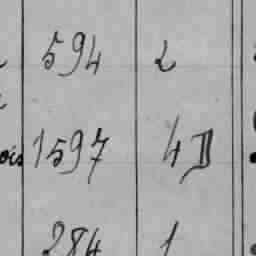 594 2
ois 1597 4D
284 1